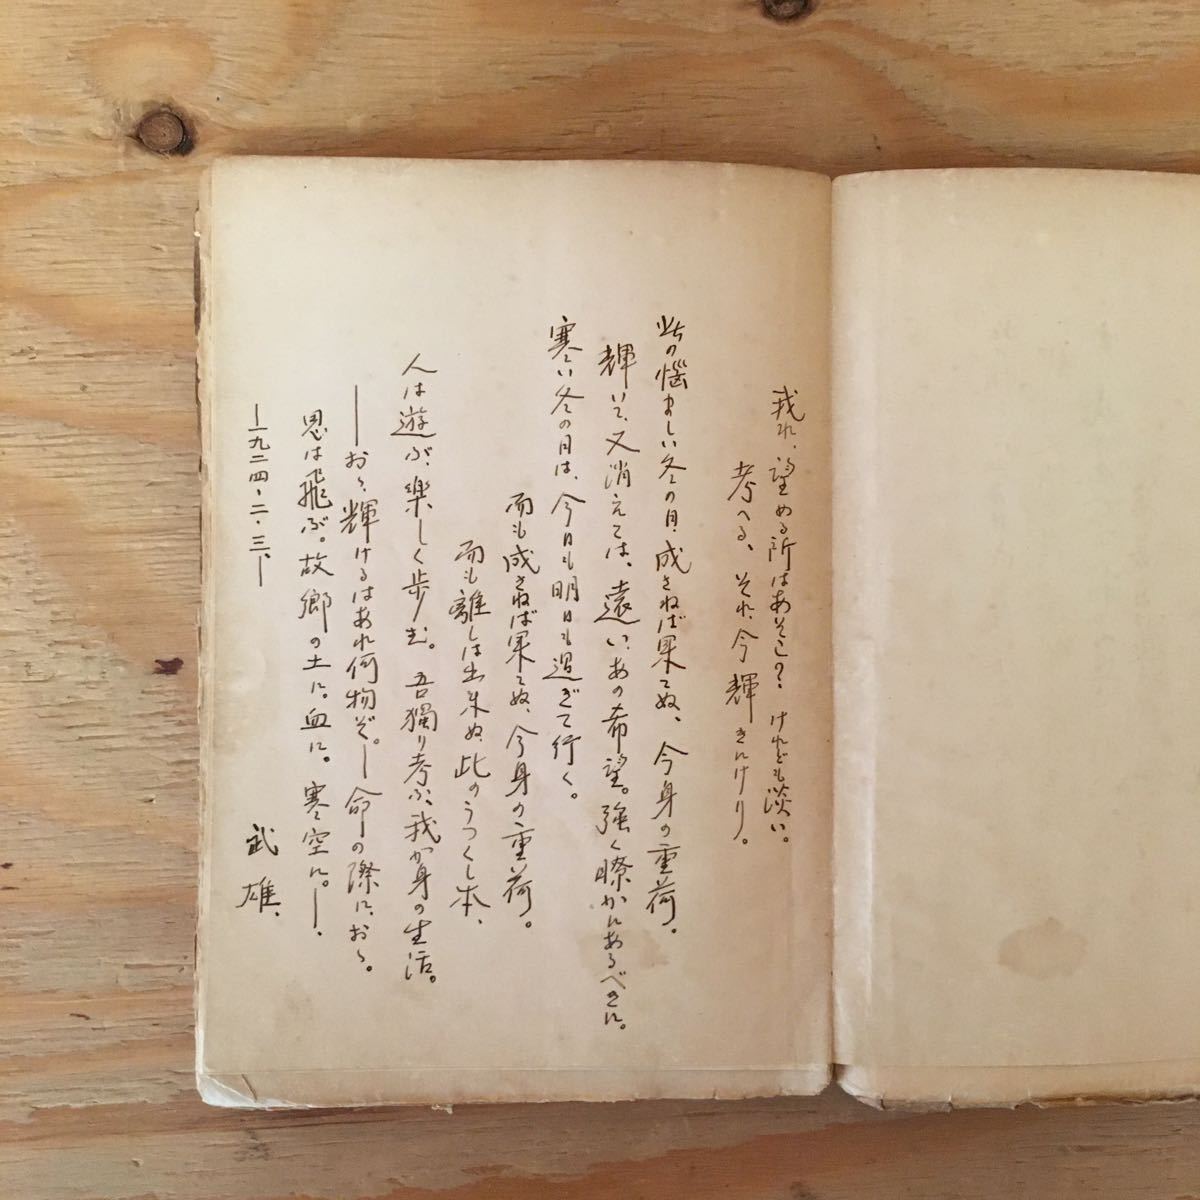 我れ、望める所はあそこ？ けれども淡い。
考へる、それ、今輝きにけり。
此の悩ましい冬の日、成さねば果てぬ、今身の重荷。
輝いて、又消えては、遠い、あの希望。強く瞭かにあるべきに。
寒い冬の日は、今日も明日も過ぎて行く。
而も成さねば果てぬ、今身の重荷。
而も離しは出来ぬ、此のうつくし本、
人は遊ぶ、楽しく歩む。吾獨り考ふ、我が身の生活。
――おゝ、輝けるはあれ何物ぞ。―命の際に、おゝ。
思は飛ぶ。故郷の土に。血に。寒空に。――.
―一九二四、二、三、―
武雄、